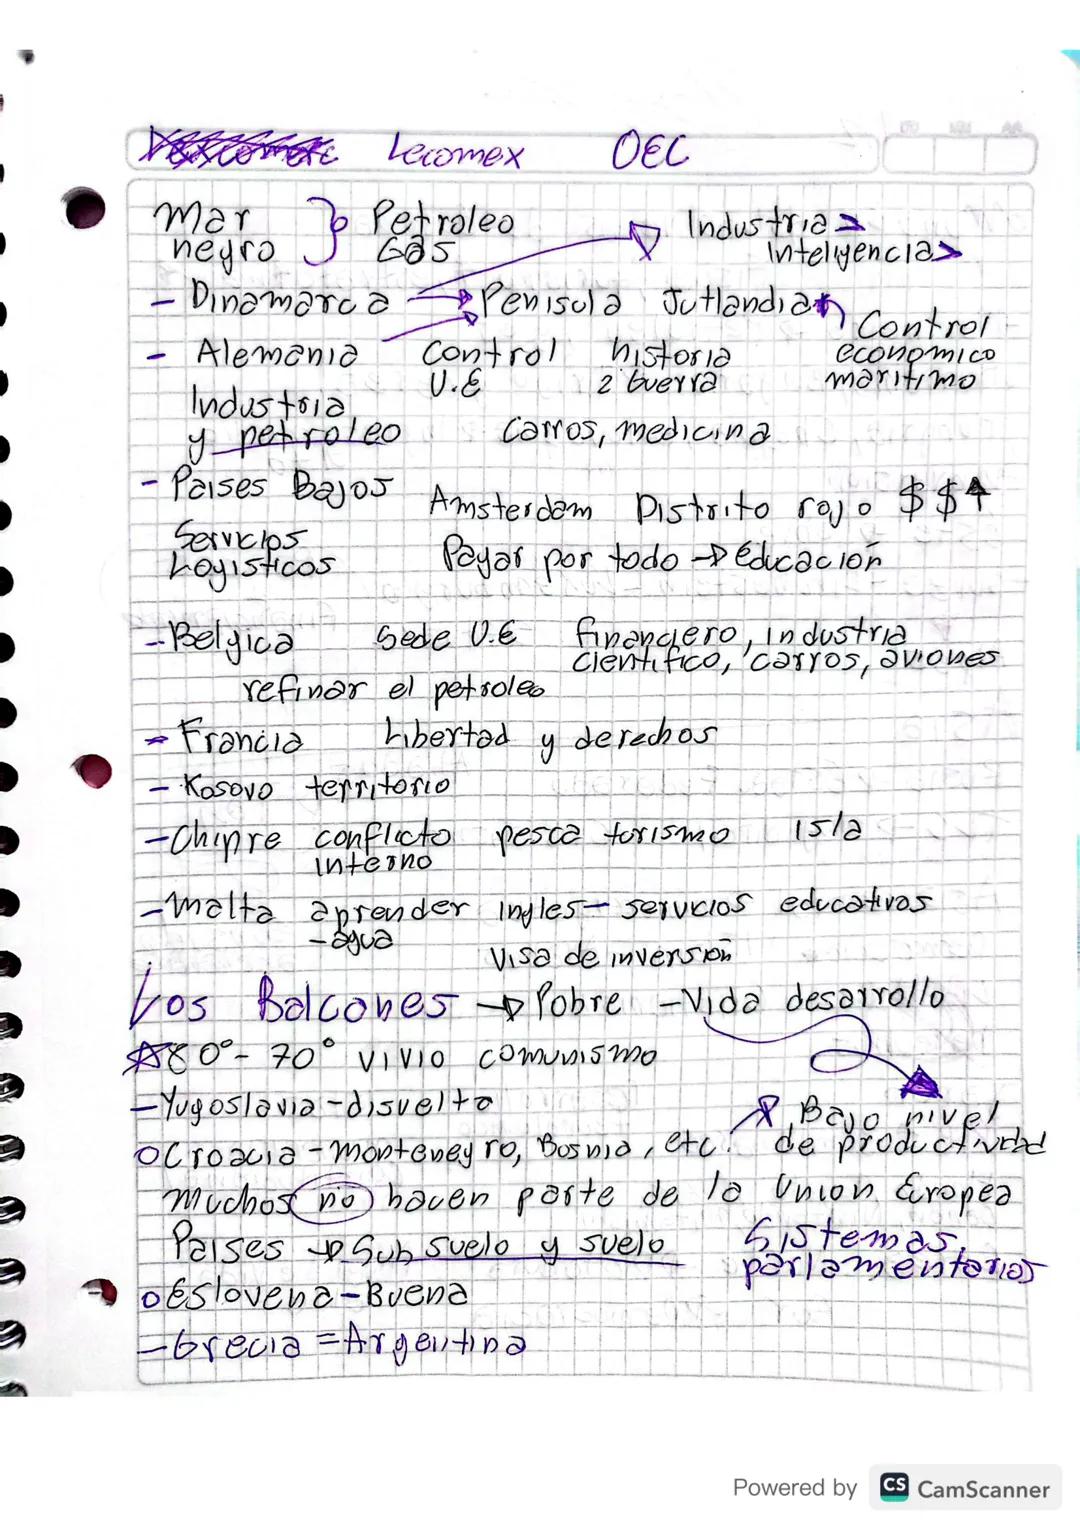 Lecomex OEC
Mar } Petroleo Industria >
negro Gas Inteligencia >
- Dinamarca → Penisula Jutlandia Control
- Alemania Control historia economico
U.E 2 Guerra maritimo
Industria
y petroleo Carros, medicina
- Paises Bajos Amsterdam Distrito rojo $ $ ↑
Servicios
Logisticos Pagar por todo → Educación
- Belgica Sede U.E financiero, industria
cientifico, carros, aviones
refinar el petroleo
- Francia Libertad y derechos
- Kosovo territorio
- Chipre conflicto pesca turismo isla
interno
- Malta aprender ingles - servicios educativos
- agua
Visa de inversión
Los Balcones → Pobre - Vida desarrollo
80° - 70° vivio comunismo
- Yugoslavia - disuelta
Bajo nivel
o Croacia - Montenegro, Bosnia, etc. de productividad
Muchos no hacen parte de la Union Europea
Paises → Sub suelo y suelo Sistemas
parlamentarios
o Eslovena - Buena
- Grecia = Argentina
Powered by CS CamScanner